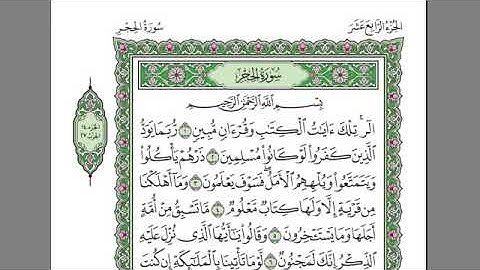 الجزء الرابع عشر
سورة الحجر
سُورَةُ الحِجْرِ
بِسْمِ اللَّهِ الرَّحْمَٰنِ الرَّحِيمِ
الٓر ۚ تِلْكَ ءَايَٰتُ ٱلْكِتَٰبِ وَقُرْءَانٍ مُّبِينٍ ١ رُّبَمَا يَوَدُّ
ٱلَّذِينَ كَفَرُوا۟ لَوْ كَانُوا۟ مُسْلِمِينَ ٢ ذَرْهُمْ يَأْكُلُوا۟
وَيَتَمَتَّعُوا۟ وَيُلْهِهِمُ ٱلْأَمَلُ ۖ فَسَوْفَ يَعْلَمُونَ ٣ وَمَآ أَهْلَكْنَا
مِن قَرْيَةٍ إِلَّا وَلَهَا كِتَابٌ مَّعْلُومٌ ٤ مَّا تَسْبِقُ مِنْ أُمَّةٍ
أَجَلَهَا وَمَا يَسْتَـْٔخِرُونَ ٥ وَقَالُوا۟ يَٰٓأَيُّهَا ٱلَّذِى نُزِّلَ عَلَيْهِ
ٱلذِّكْرُ إِنَّكَ لَمَجْنُونٌ ٦ لَّوْ مَا تَأْتِينَا بِٱلْمَلَٰٓئِكَةِ إِن كُنتَ